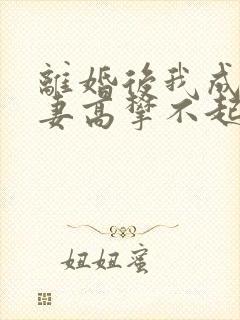 離婚後我成
妻高攀不起
妞妞蜜